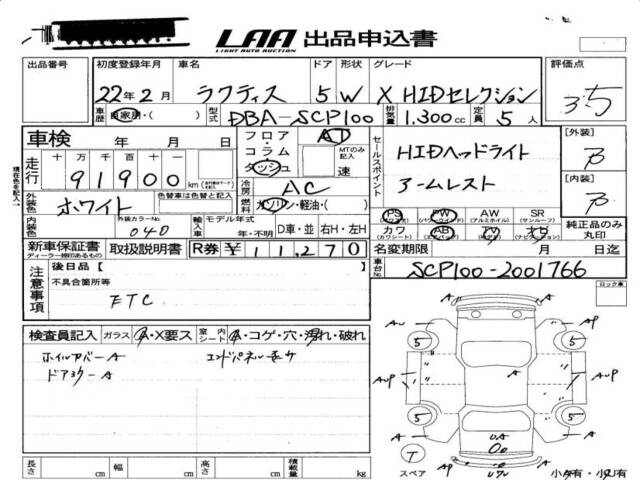 LAA 出品申込書
LIGHT AUTO AUCTION
出品番号 初度登録年月 車名 ドア 形状 グレード 評価点
22年2月 ラクティス 5 W X HIDセレクション 3.5
車歴 自家用・( ) 型式 DBA-SCP100 排気量 1,300cc 定員 5人
車検 年 月 日 フロア・コラム・ダッシュ AT MTのみ記入 速
セールスポイント HIDヘッドライト
アームレスト
[外装] B
[内装] B
走行 十万千百十一
91900 km
冷房 AC
燃料 ガソリン・軽油・( )
外装色 ホワイト 色替車は色替と記入
内装色 外装カラーNo. 040
輸入車 モデル年式 年・不明 D車・並 右H・左H
PS PW AW SR
(アルミホイル) (サンルーフ)
カワ AB TV ナビ
(カワシート)
純正品のみ丸印
新車保証書 取扱説明書 R券 ¥11,270
ディーラー捺印あるもの
名変期限 月 日迄
車台No. SCP100-2001766
注意事項 後日品 [ ]
不具合箇所等
ETC
ロック車
検査員記入 ガラス A・X要ス 室内シート A・コゲ・穴・汚れ・破れ
ホイルカバーA
ドアミラーA
AU AP
5 5
A A
AUP AUP
A
5 5
A A
UA
T スペア
長さ cm 幅 cm 高さ cm 積載量 kg